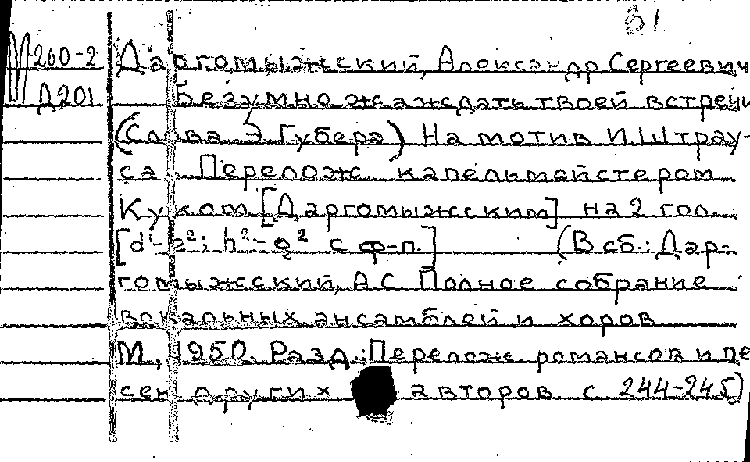 81
М260-2 Даргомыжский, Александр Сергеевич
Д201 Безумно жаждать твоей встречи
(Слова Э. Губера) На мотив И. Штрау-
са Перелож. капельмайстером
Куком [Даргомыжским] на 2 гол.
с ф-п.] (В сб.: Дар-
гомыжский, А.С. Полное собрание
вокальных ансамблей и хоров
М., 1950. Разд.: Перелож. романсов и пе
сен других авторов. с. 244-245)